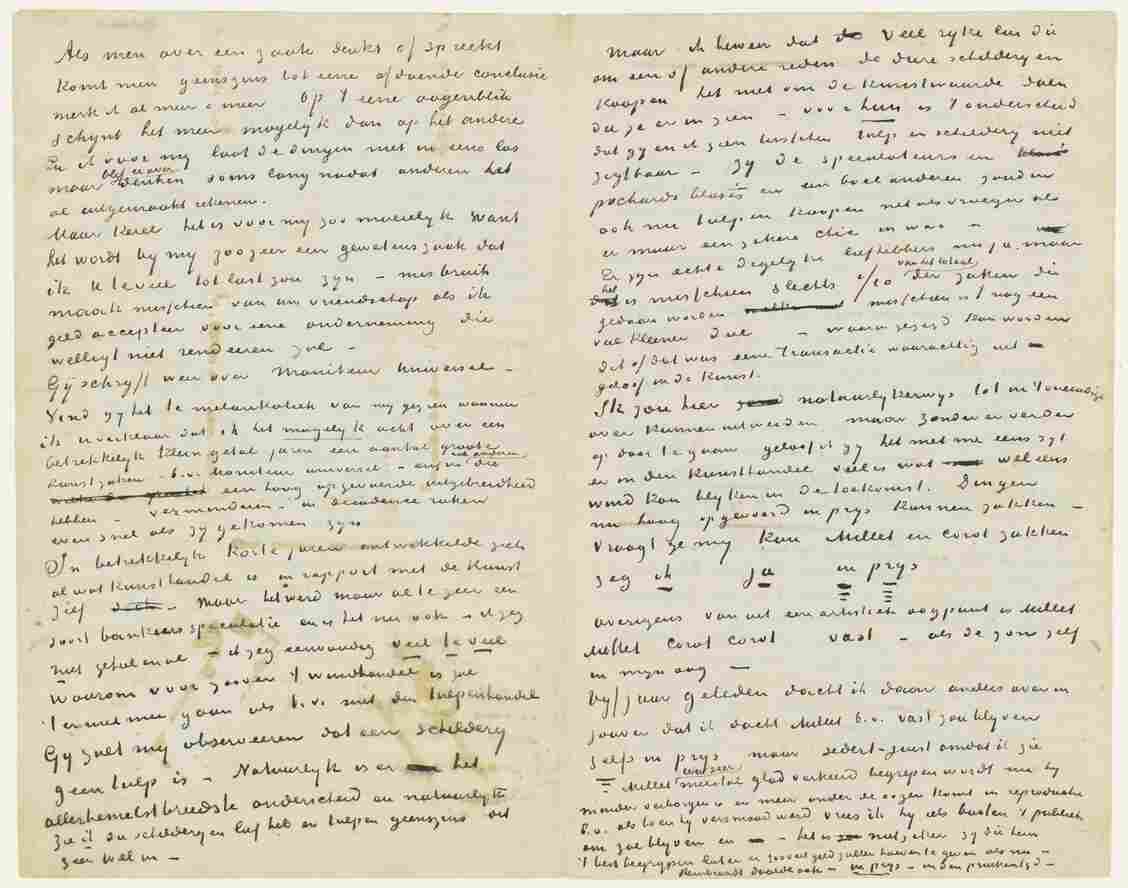 Als men over een zaak denkt of spreekt
komt men geenszins tot eene afdoende conclusie
merk ik al meer & meer op 't eene oogenblik
schynt het meer mogelyk dan op het andere
En ik voor my laat de dingen niet in eens los
maar blyf er over denken soms lang nadat anderen het
al uitgemaakt rekenen.
Maar kerel het is voor my zoo moeielyk want
het wordt by my zoozeer een gewetenszaak dat
ik U te veel tot last zou zyn – misbruik
maak misschien van uw vriendschap als ik
geld accepteer voor eene onderneming die
welligt niet rendeeren zal –
Gy schryft weer over Moniteur Universel –
Vind gy het te melankoliek van my gezien wanneer
ik U verklaar dat ik het mogelyk acht over een
betrekkelyk klein getal jaren een aantal groote
kunstzaken – b.v. Moniteur universel – en anderen die
een hoog opgevoerde uitgebreidheid
hebben – verminderen – in decadence raken
even snel als zy gekomen zyn
In betrekkelyk korte jaren ontwikkelde zich
al wat kunsthandel is in rapport met de kunst
zelf – Maar het werd maar al te zeer een
soort bankiersspeculatie en is het nu ook – ik zeg
niet geheel en al – ik zeg eenvoudig veel te veel
Waarom voor zoover 't windhandel is zal
't er niet mee gaan als b.v. met den tulpenhandel
Gy zult my observeeren dat een schildery
geen tulp is – Natuurlyk is er het
allerhemelsbreedste onderscheid en natuurlyk
zie ik die scheldergen lief heb en tulpen geenszins dit
zeer wel in –
maar ik beweer dat veel ryke lui die
om een of andere reden de dure schilderyen
koopen het niet om de kunstwaarde doen
die ze er in zien – voor hun is 't onderscheid
dat gy en ik zien tusschen tulp en schildery niet
zigtbaar – Zy de speculateurs en
pochards blasés en een boel anderen zouden
ook nu tulpen koopen net als vroeger als
er maar een zekere chic in was –
Er zyn echte degelyke liefhebbers nu ja, maar
het is misschien slechts 1/10 van het totaal der zaken die
gedaan worden misschien is 't nog een
veel kleiner deel – waarin gezegd kan worden
dit of dat was eene transactie waarachtig uit
geloof in de kunst.
Ik zou hier natuurlykerwys tot in 't oneindige
over kunnen uitweiden maar zonder er verder
op door te gaan geloof ik gy het met me eens zyt
er in den kunsthandel veel is wat wel eens
wind kan blyken in de toekomst. Dingen
nu hoog opgevoerd in prys kunnen zakken –
Vraagt ge my kan Millet en Corot zakken
zeg ik ja in prys
overigens van uit een artistiek oogpunt is Millet
Millet Corot Corot vast – als de zon zelf
in myn oog –
Vyf jaar geleden dacht ik daar anders over in
zoover dat ik dacht Millet b.v. vast zou blyven
zelfs in prys maar sedert – juist omdat ik zie
Millet meestal glad verkeerd begrepen wordt nu hy
minder verborgen is en meer onder de oogen komt in reproductie
b.v. als toen hy versmaad werd vrees ik hy als buiten 't publiek
om zal blyven en – het is niet zeker zy die hem
't best begrypen later er zooveel geld zullen hoeven te geven als nu –
Rembrandt daalde ook – in prys – in den pruikentyd –